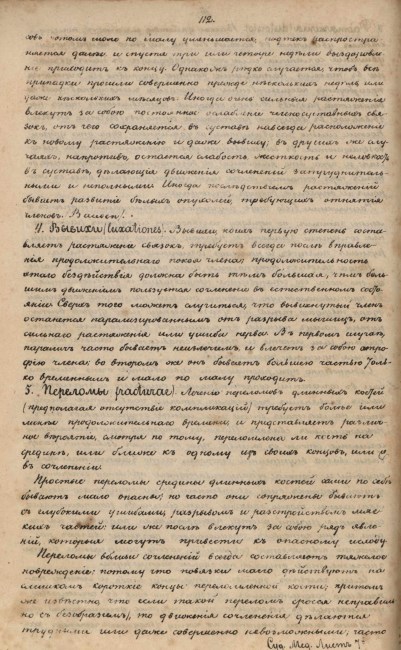 112.
совъ этотъ мало по малу уменьшается, подтекъ распростра-
няется далѣе и спустя три или четыре недѣли выздоровле-
ніе приходитъ къ концу. Однакожъ рѣдко случается, чтобъ всѣ
припадки прошли совершенно прежде нѣсколькихъ недѣль или
даже нѣсколькихъ мѣсяцевъ. Иногда очень сильныя растяженія
влекутъ за собою постоянное ослабленіе членосуставныхъ свя-
зокъ, отъ чего сохраняется въ суставѣ навсегда расположеніе
къ новому растяженію и даже вывиху; въ другихъ же слу-
чаяхъ, напротивъ, остается слабость, жесткость и неловкость
въ суставѣ, дѣлающія движенія сочлененій затруднитель-
ными и неполными. Иногда послѣдствіемъ растяженій
бываетъ развитіе бѣлыхъ опухолей, требующихъ отнятія
членовъ.
4. Вывихи (luxationes). Вывихи, коихъ первую степень соста-
вляетъ растяженіе связокъ, требуетъ всегда послѣ вправле-
нія продолжительнаго покоя члена; продолжительность
этого бездѣйствія должна быть тѣмъ большая, чѣмъ боль-
шимъ движеніемъ пользуется сочлененіе въ естественномъ состо-
яніи. Сверхъ того можетъ случиться, что вывихнутый членъ
останется парализированнымъ отъ разрыва мышицъ, отъ
сильнаго растяженія или ушиба нерва. Въ первомъ случаѣ,
параличъ часто бываетъ неизлечимъ, и влечетъ за собою атро-
фію члена; во второмъ же онъ бываетъ большею частью толь-
ко временнымъ и мало по малу проходитъ.
5. Переломы (fracturae). Леченіе переломовъ длинныхъ костей
(предполагая отсутствіе компликацій) требуетъ болѣе или
менѣе продолжительнаго времени, и представляетъ различ-
ное смотря по тому, переломлена ли кость на
срединѣ, или ближе къ одному изъ своихъ концовъ, или
въ сочлененіи.
Простые переломы средины длинныхъ костей сами по себѣ
бываютъ мало опасны; но часто они сопряжены бываютъ
съ глубокими ушибами, разрывомъ и разстройствомъ мяг-
кихъ частей; или же послѣ влекутъ за собою рядъ явле-
ній, которыя могутъ привести къ опасному исходу.
Переломы вблизи сочлененій всегда составляютъ тяжелое
поврежденіе: потому что повязки мало дѣйствуютъ на
слишкомъ короткіе концы переломленной кости; притомъ
же извѣстно что если такой переломъ сросся неправиль-
но съ безобразіемъ, то движенія сочлененія дѣлаются
трудными или даже совершенно невозможными, часто
Суд. Мед. Листъ 7й